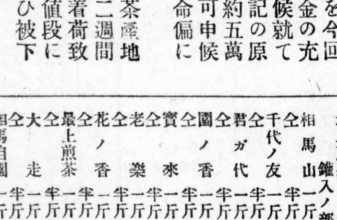 を今回
金の充
候就て
記の原
約五萬
可申候
命偏に
茶産地
二週間
着荷致
値段に
ひ被下
鑵入ノ部
相馬山 一斤
仝 半斤
千代ノ友 一斤
仝 半斤
君ガ代 一斤
仝 半斤
園ノ香 一斤
仝 半斤
寳來 一斤
仝 半斤
老樂 一斤
仝 半斤
花ノ香 一斤
仝 半斤
最上煎茶 一斤
仝 半斤
大走 一斤
仝 半斤
相馬自園 一斤